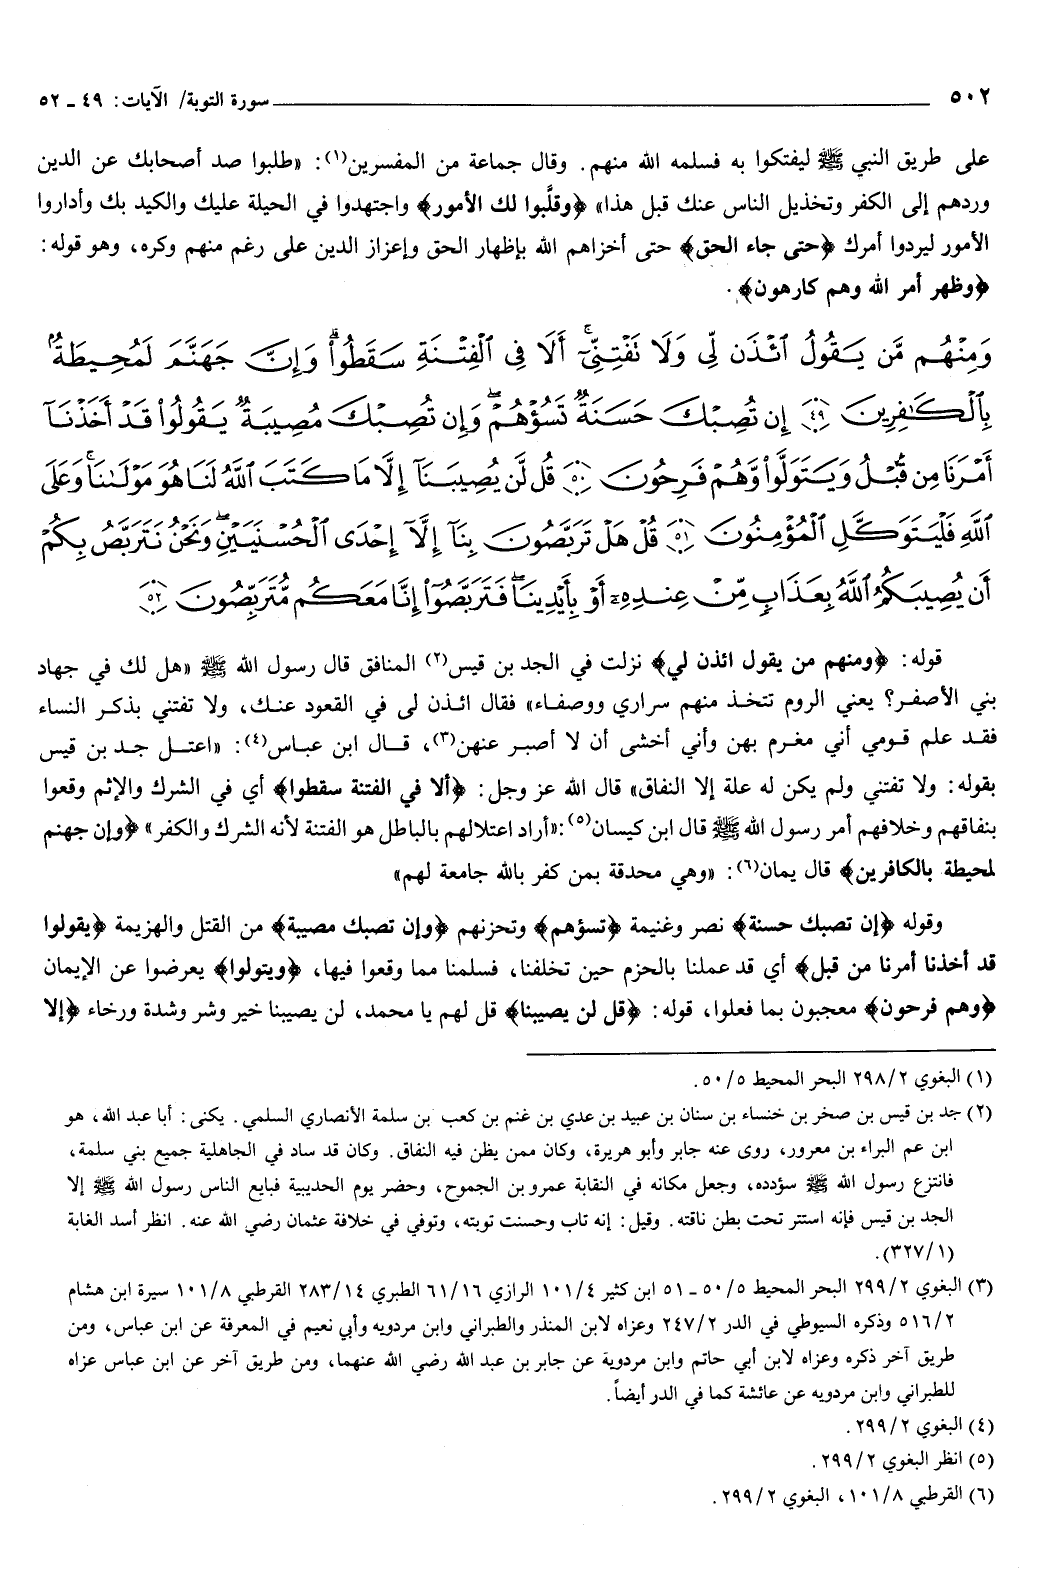 ٥٠٢ سورة التوبة/ الآيات: ٤٩ ـ ٥٢
على طريق النبي ﷺ ليفتكوا به فسلمه الله منهم. وقال جماعة من المفسرين(١): «طلبوا صد أصحابك عن الدين
وردهم إلى الكفر وتخذيل الناس عنك قبل هذا» ﴿وقلَّبوا لك الأمور﴾ واجتهدوا في الحيلة عليك والكيد بك وأداروا
الأمور ليردوا أمرك ﴿حتى جاء الحق﴾ حتى أخزاهم الله بإظهار الحق وإعزاز الدين على رغم منهم وكره، وهو قوله:
﴿وظهر أمر الله وهم كارهون﴾.
وَمِنْهُم مَّن يَقُولُ ٱئْذَن لِّى وَلَا تَفْتِنِّىٓ ۚ أَلَا فِى ٱلْفِتْنَةِ سَقَطُوا۟ ۗ وَإِنَّ جَهَنَّمَ لَمُحِيطَةٌۢ
بِٱلْكَـٰفِرِينَ ﴿٤٩﴾ إِن تُصِبْكَ حَسَنَةٌ تَسُؤْهُمْ ۖ وَإِن تُصِبْكَ مُصِيبَةٌ يَقُولُوا۟ قَدْ أَخَذْنَآ
أَمْرَنَا مِن قَبْلُ وَيَتَوَلَّوا۟ وَّهُمْ فَرِحُونَ ﴿٥٠﴾ قُل لَّن يُصِيبَنَآ إِلَّا مَا كَتَبَ ٱللَّهُ لَنَا هُوَ مَوْلَىٰنَا ۚ وَعَلَى
ٱللَّهِ فَلْيَتَوَكَّلِ ٱلْمُؤْمِنُونَ ﴿٥١﴾ قُلْ هَلْ تَرَبَّصُونَ بِنَآ إِلَّآ إِحْدَى ٱلْحُسْنَيَيْنِ ۖ وَنَحْنُ نَتَرَبَّصُ بِكُمْ
أَن يُصِيبَكُمُ ٱللَّهُ بِعَذَابٍ مِّنْ عِندِهِۦٓ أَوْ بِأَيْدِينَا ۖ فَتَرَبَّصُوٓا۟ إِنَّا مَعَكُم مُّتَرَبِّصُونَ ﴿٥٢﴾
قوله: ﴿ومنهم من يقول ائذن لي﴾ نزلت في الجد بن قيس(٢) المنافق قال رسول الله ﷺ «هل لك في جهاد
بني الأصفر؟ يعني الروم تتخذ منهم سراري ووصفاء» فقال ائذن لى في القعود عنك، ولا تفتني بذكر النساء
فقد علم قومي أني مغرم بهن وأني أخشى أن لا أصبر عنهن(٣)، قال ابن عباس(٤): «اعتل جد بن قيس
بقوله: ولا تفتني ولم يكن له علة إلا النفاق» قال الله عز وجل: ﴿ألا في الفتنة سقطوا﴾ أي في الشرك والإثم وقعوا
بنفاقهم وخلافهم أمر رسول الله ﷺ قال ابن كيسان(٥): «أراد اعتلالهم بالباطل هو الفتنة لأنه الشرك والكفر» ﴿وإن جهنم
لمحيطة بالكافرين﴾ قال يمان(٦): «وهي محدقة بمن كفر بالله جامعة لهم»
وقوله ﴿إن تصبك حسنة﴾ نصر وغنيمة ﴿تسؤهم﴾ وتحزنهم ﴿وإن تصبك مصيبة﴾ من القتل والهزيمة ﴿يقولوا
قد أخذنا أمرنا من قبل﴾ أي قد عملنا بالحزم حين تخلفنا، فسلمنا مما وقعوا فيها، ﴿ويتولوا﴾ يعرضوا عن الإيمان
﴿وهم فرحون﴾ معجبون بما فعلوا، قوله: ﴿قل لن يصيبنا﴾ قل لهم يا محمد، لن يصيبنا خير وشر وشدة ورخاء ﴿إلا
(١) البغوي ٢٩٨/٢ البحر المحيط ٥٠/٥.
(٢) جد بن قيس بن صخر بن خنساء بن سنان بن عبيد بن عدي بن غنم بن كعب بن سلمة الأنصاري السلمي. يكنى: أبا عبد الله، هو
ابن عم البراء بن معرور، روى عنه جابر وأبو هريرة، وكان ممن يظن فيه النفاق. وكان قد ساد في الجاهلية جميع بني سلمة،
فانتزع رسول الله ﷺ سؤدده، وجعل مكانه في النقابة عمرو بن الجموح، وحضر يوم الحديبية فبايع الناس رسول الله ﷺ إلا
الجد بن قيس فإنه استتر تحت بطن ناقته. وقيل: إنه تاب وحسنت توبته، وتوفي في خلافة عثمان رضي الله عنه. انظر أسد الغابة
(٣٢٧/١).
(٣) البغوي ٢٩٩/٢ البحر المحيط ٥٠/٥ ـ ٥١ ابن كثير ١٠١/٤ الرازي ٦١/١٦ الطبري ٢٨٣/١٤ القرطبي ١٠١/٨ سيرة ابن هشام
٥١٦/٢ وذكره السيوطي في الدر ٢٤٧/٢ وعزاه لابن المنذر والطبراني وابن مردويه وأبي نعيم في المعرفة عن ابن عباس، ومن
طريق آخر ذكره وعزاه لابن أبي حاتم وابن مردوية عن جابر بن عبد الله رضي الله عنهما، ومن طريق آخر عن ابن عباس عزاه
للطبراني وابن مردويه عن عائشة كما في الدر أيضاً.
(٤) البغوي ٢٩٩/٢.
(٥) انظر البغوي ٢٩٩/٢.
(٦) القرطبي ١٠١/٨، البغوي ٢٩٩/٢.